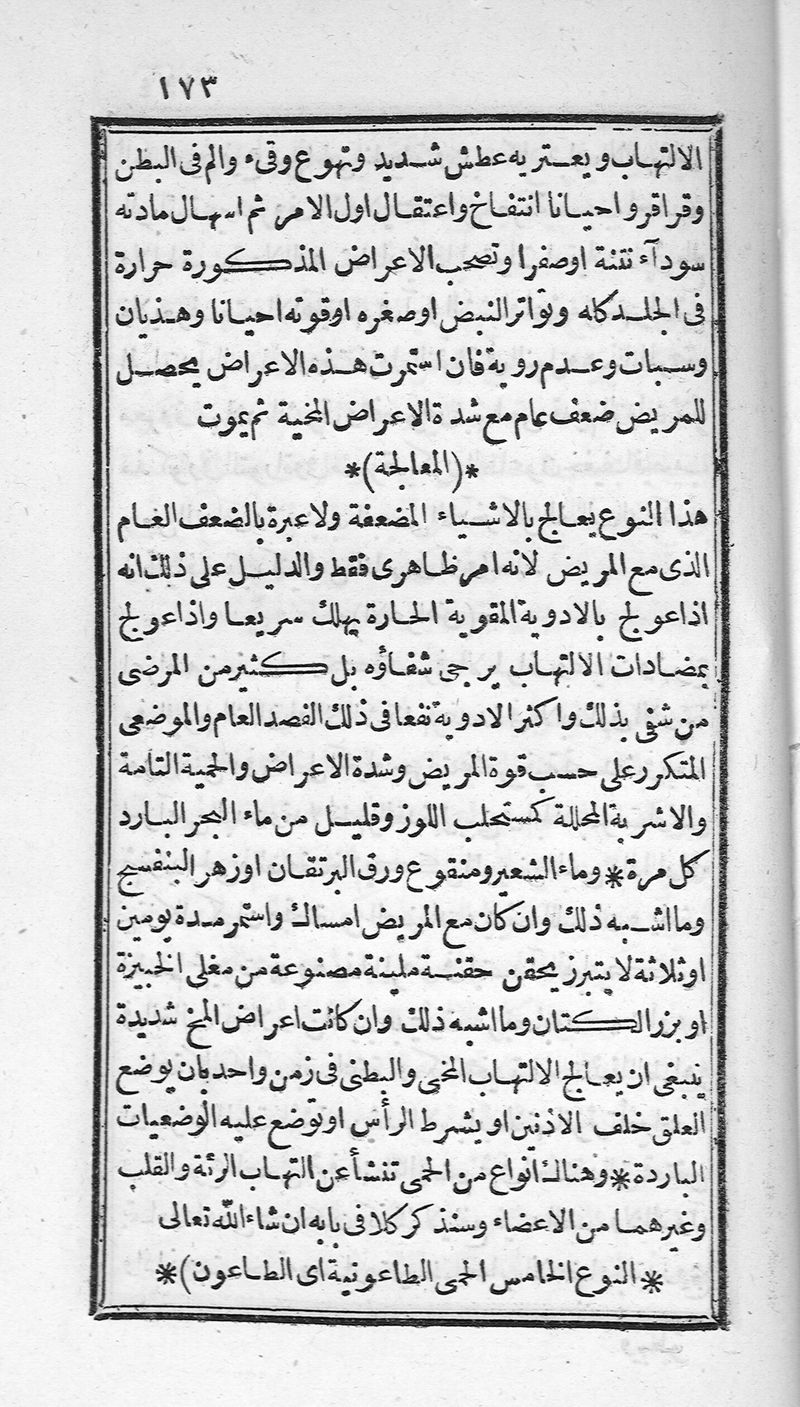 ١٧٣
الالتهاب ويعتريه عطش شديد وتهوع وقىء والم فى البطن
وقراقر واحيانا انتفاخ واعتقال اول الامر ثم اسهال مادته
سودآء نتنة اوصفرا وتصحب الاعراض المذكورة حرارة
فى الجلد كله وتواتر النبض اوصغره اوقوته احيانا وهذيان
وسبات وعدم روية فان استمرت هذه الاعراض يحصل
للمريض ضعف عام مع شدة الاعراض المخية ثم يموت
*(المعالجة)*
هذا النوع يعالج بالاشياء المضعفة ولاعبرة بالضعف العام
الذى مع المريض لانه امر ظاهرى فقط والدليل على ذلك انه
اذاعولج بالادوية المقوية الحارة يهلك سريعا واذاعولج
بمضادات الالتهاب يرجى شفاؤه بل كثير من المرضى
من شفى بذلك واكثر الادوية نفعا فى ذلك الفصد العام والموضعى
المتكرر على حسب قوة المريض وشدة الاعراض والحمية التامة
والاشربة المحللة كمستحلب اللوز وقليل من ماء البحر البارد
كل مرة * وماء الشعير ومنقوع ورق البرتقان اوزهر البنفسج
وما اشبه ذلك وان كان مع المريض امساك واستمر مدة يومين
اوثلاثة لا يتبرز يحقن حقنة ملينة مصنوعة من مغلى الخبيزة
اوبزر الكتان وما اشبه ذلك وان كانت اعراض المخ شديدة
ينبغى ان يعالج الالتهاب المخى والبطنى فى زمن واحد بان يوضع
العلق خلف الاذنين اويشرط الرأس اوتوضع عليه الوضعيات
الباردة * وهناك انواع من الحمى تنشأ عن التهاب الرئة والقلب
وغيرهما من الاعضاء وسنذكر كلا فى بابه ان شاء الله تعالى
* النوع الخامس الحمى الطاعونية اى الطاعون)*